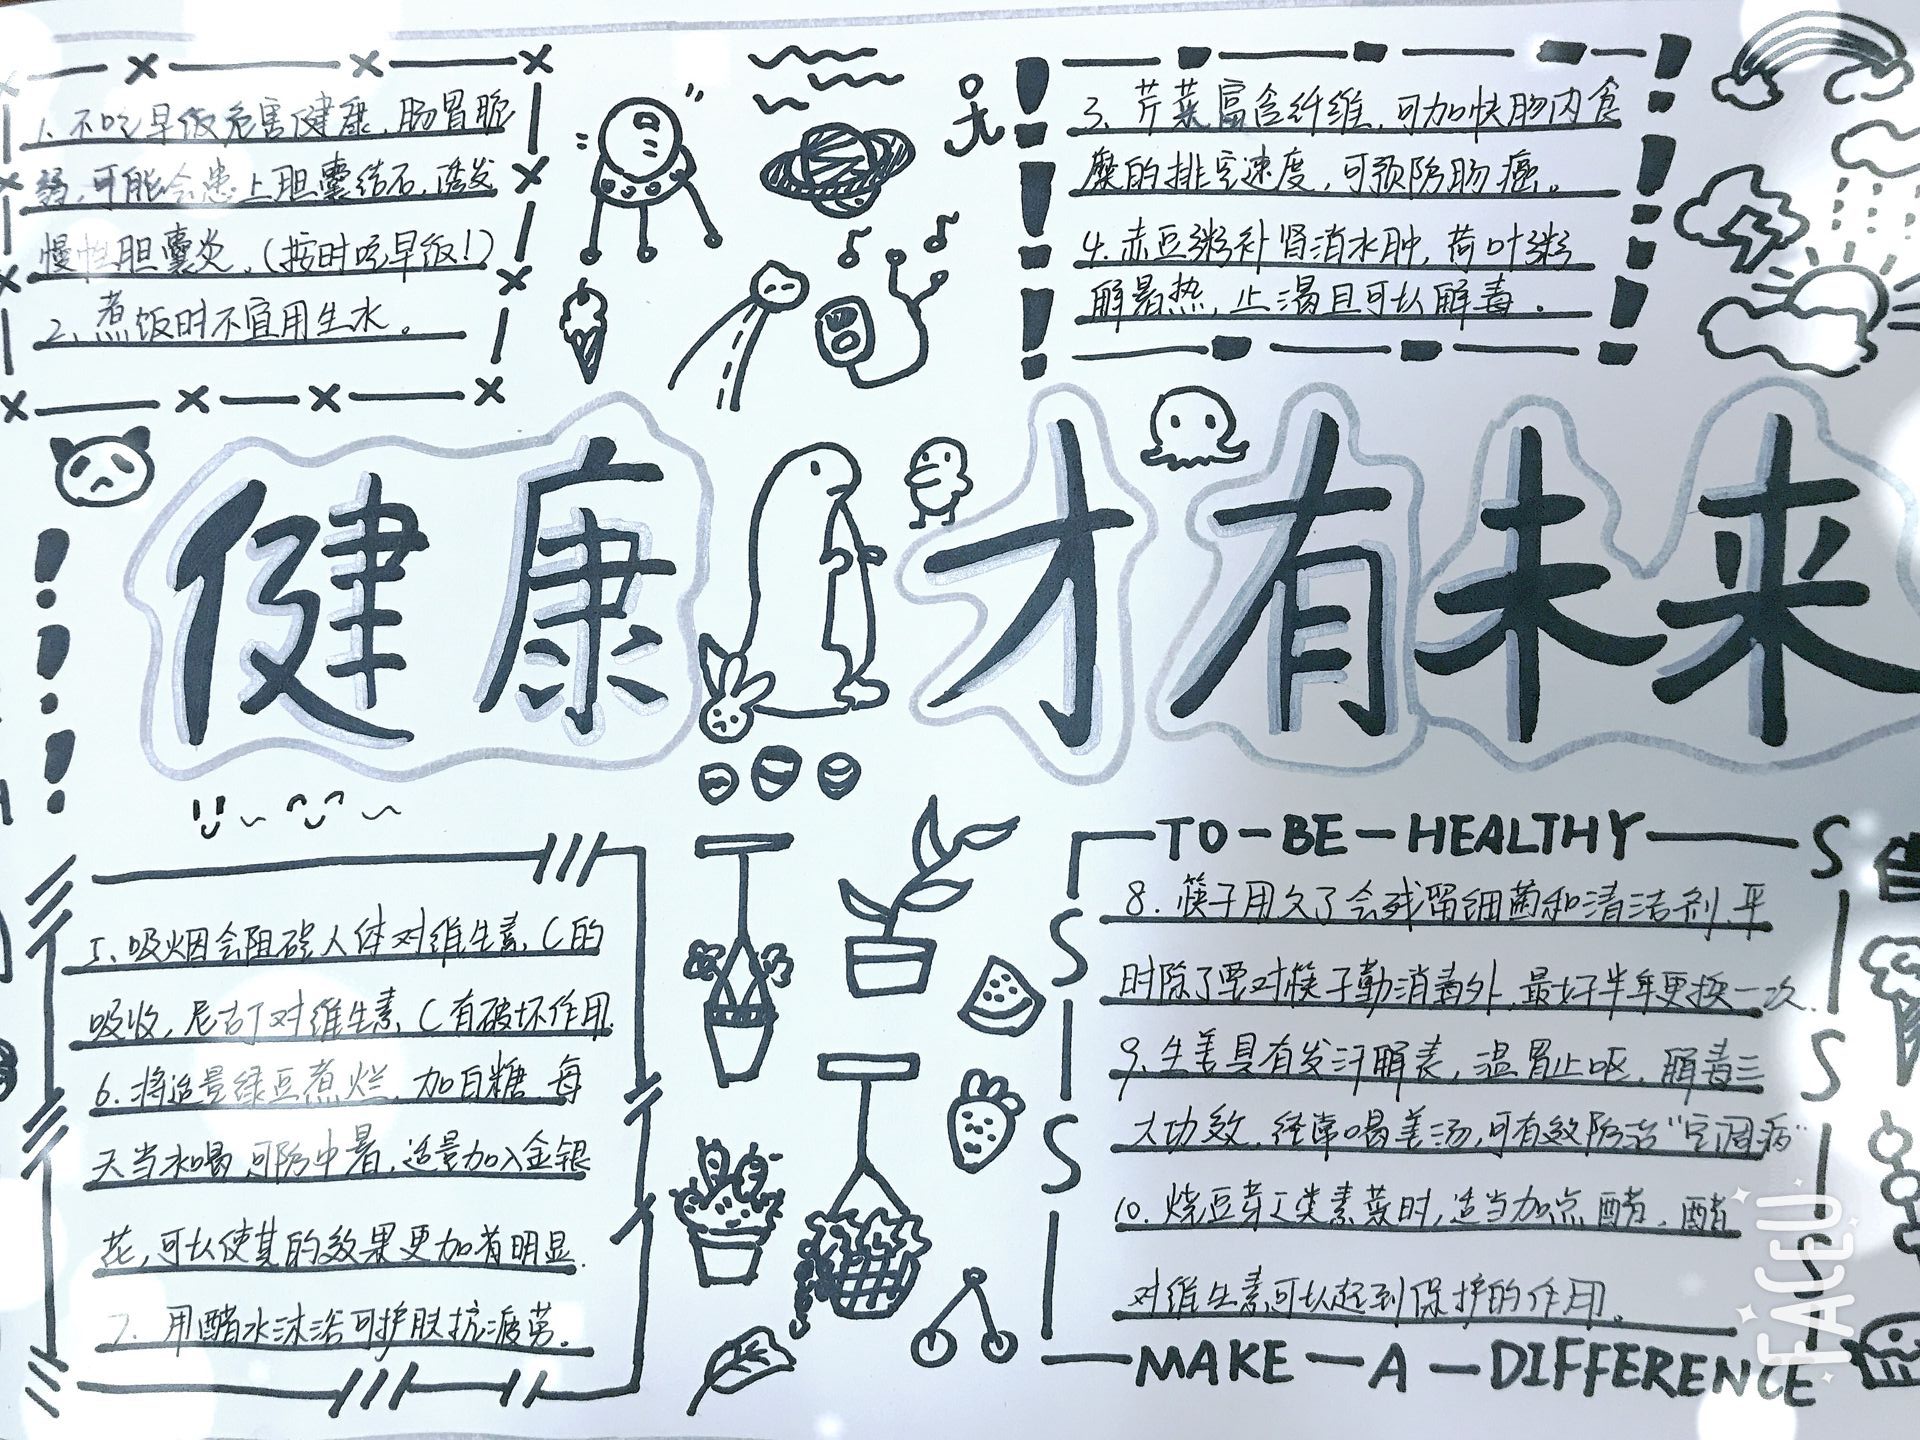 1、不吃早饭危害健康,肠胃脆
弱,可能会患上胆囊结石,诱发
慢性胆囊炎。(按时吃早饭!)
2、煮饭时不宜用生水。
3、芹菜富含纤维,可加快肠内食
糜的排空速度,可预防肠癌。
4.赤豆粥补肾消水肿,荷叶粥
解暑热,止渴且可以解毒.
健康才有未来
5、吸烟会阻碍人体对维生素C的
吸收,尼古丁对维生素C有破坏作用.
6.将适量绿豆煮烂,加白糖,每
天当水喝,可防中暑,适量加入金银
花,可以使其的效果更加有明显.
7、用醋水沐浴可护肤抗疲劳.
TO-BE-HEALTHY
8.筷子用久了会残留细菌和清洁剂,平
时除了要对筷子勤消毒外,最好半年更换一次.
9.生姜具有发汗解表,温胃止呕,解毒三
大功效.经常喝姜汤,可有效防治"空调病"
10.烧豆芽之类素菜时,适当加点醋,醋
对维生素可以起到保护的作用。
MAKE-A-DIFFERENCE
FACEU